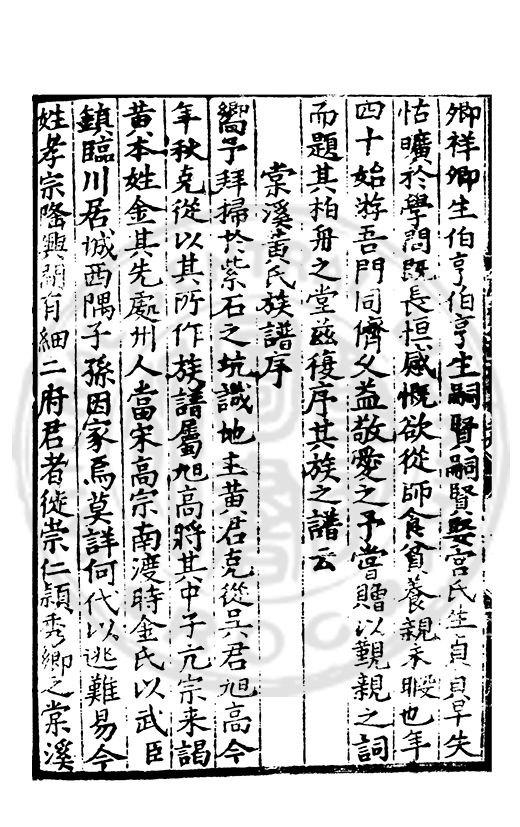 卿祥卿生伯亨伯亨生嗣賢嗣賢娶宮氏生貞貞早失
怙曠於學問既長恒感慨欲從師食貧養親未暇也年
四十始游吾門同儕父益敬愛之予嘗贈以覲親之詞
而題其柏舟之堂茲復序其族之譜云
棠溪黃氏族譜序
嚮予拜掃於紫石之坑識地主黃君克從吳君旭高今
年秋克從以其所作族譜屬旭高將其中子亢宗来謁
黃本姓金其先處州人當宋高宗南渡時金氏以武臣
鎮臨川居城西隅子孫因家焉莫詳何代以逃難易今
姓孝宗隆興間有細二府君者徙崇仁穎秀鄉之棠溪